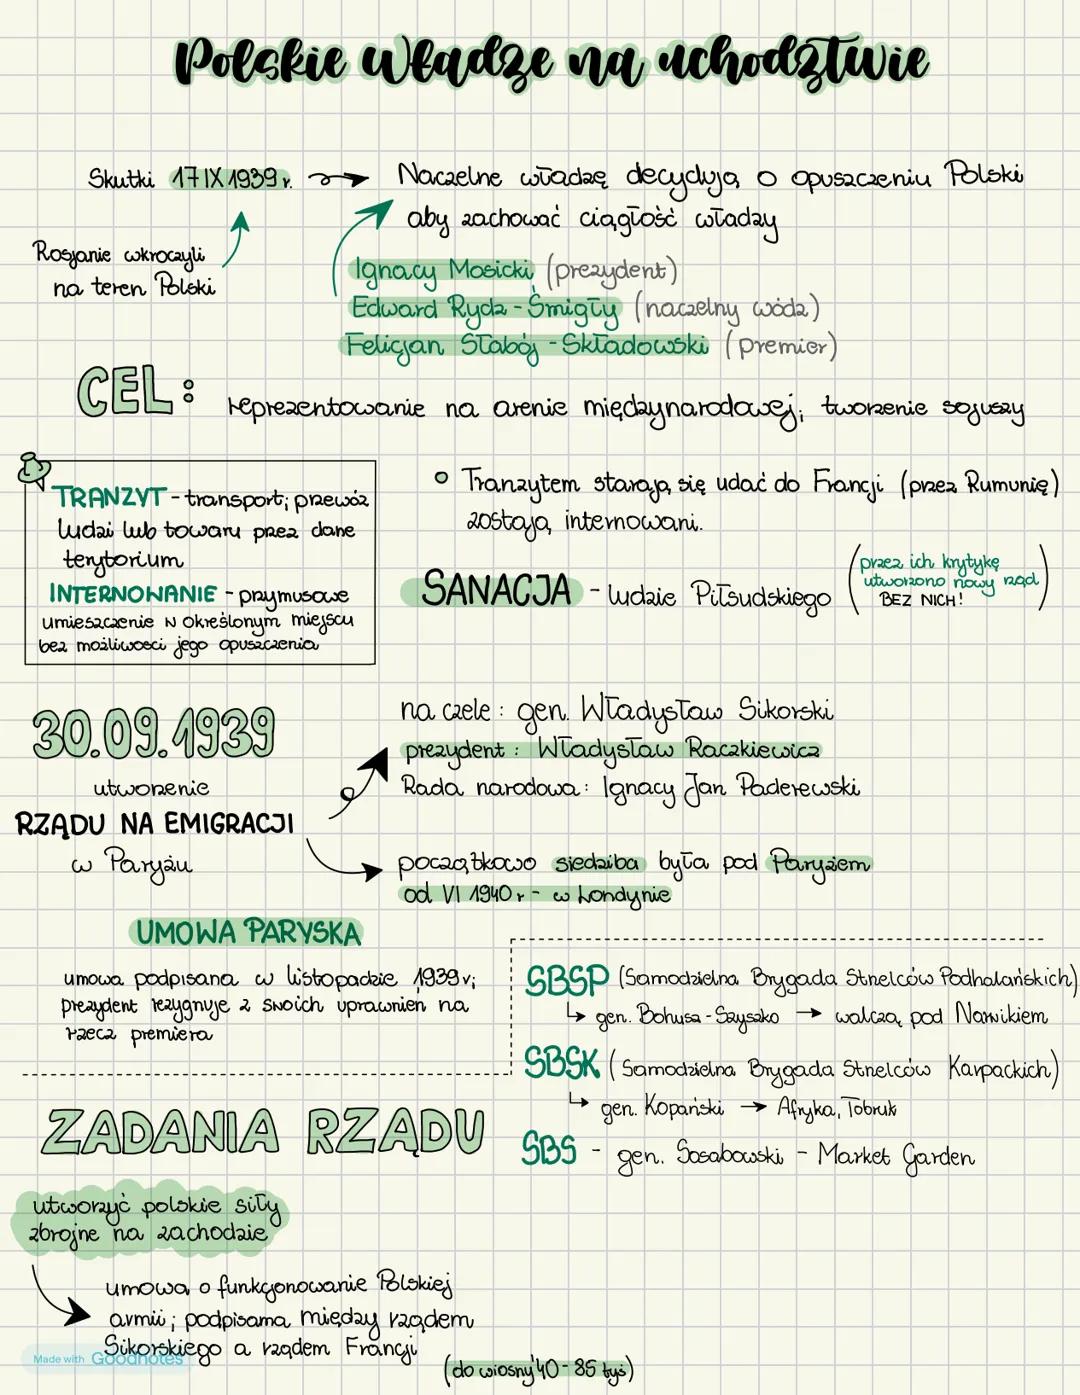 Polskie władze na uchodztwie
Skutki 17 IX 1939 r. → Naczelne władzę decydują o opuszczeniu Polski
aby zachować ciągłość władzy
Rosjanie wkroczyli
na teren Polski
Ignacy Mosicki (prezydent)
Edward Rydz - Śmigły (naczelny wódz)
Felicjan Stabój - Składowski (premier)
CEL: reprezentowanie na arenie międzynarodowej; tworzenie sojuszy
TRANZYT - transport; przewóz
ludzi lub towaru przez dane
terytorium
INTERNOWANIE - przymusowe
umieszczenie w określonym miejscu
bez możliwosci jego opuszczenia
• Tranzytem starają się udać do Francji (przez Rumunię)
zostają internowani.
SANACJA - ludzie Piłsudskiego
(przez ich krytykę
utworzono nowy rząd
BEZ NICH!)
30.09.1939
utworzenie
RZĄDU NA EMIGRACJI
w Paryżu
na czele: gen. Władysław Sikorski
prezydent: Władysław Raczkiewicz
Rada narodowa: Ignacy Jan Paderewski
początkowo siedziba była pod Paryżem
od VI 1940 r - w Londynie
UMOWA PARYSKA
umowa podpisana w listopadzie 1939 r;
prezydent rezygnuje z swoich uprawnien na
rzecz premiera
SBSP (Samodzielna Brygada Strzelców Podhalańskich)
↳ gen. Bohusz - Szyszko → walczą pod Narwikiem
SBSK (Samodzielna Brygada Strzelców Karpackich)
↳ gen. Kopański → Afryka, Tobruk
SBS - gen. Sosabowski - Market Garden
ZADANIA RZĄDU
utworzyć polskie siły
zbrojne na zachodzie
umowa o funkcjonowanie Polskiej
armii; podpisama między rządem
Sikorskiego a rządem Francji
(do wiosny '40 - 85 tyś)
Made with Goodnotes